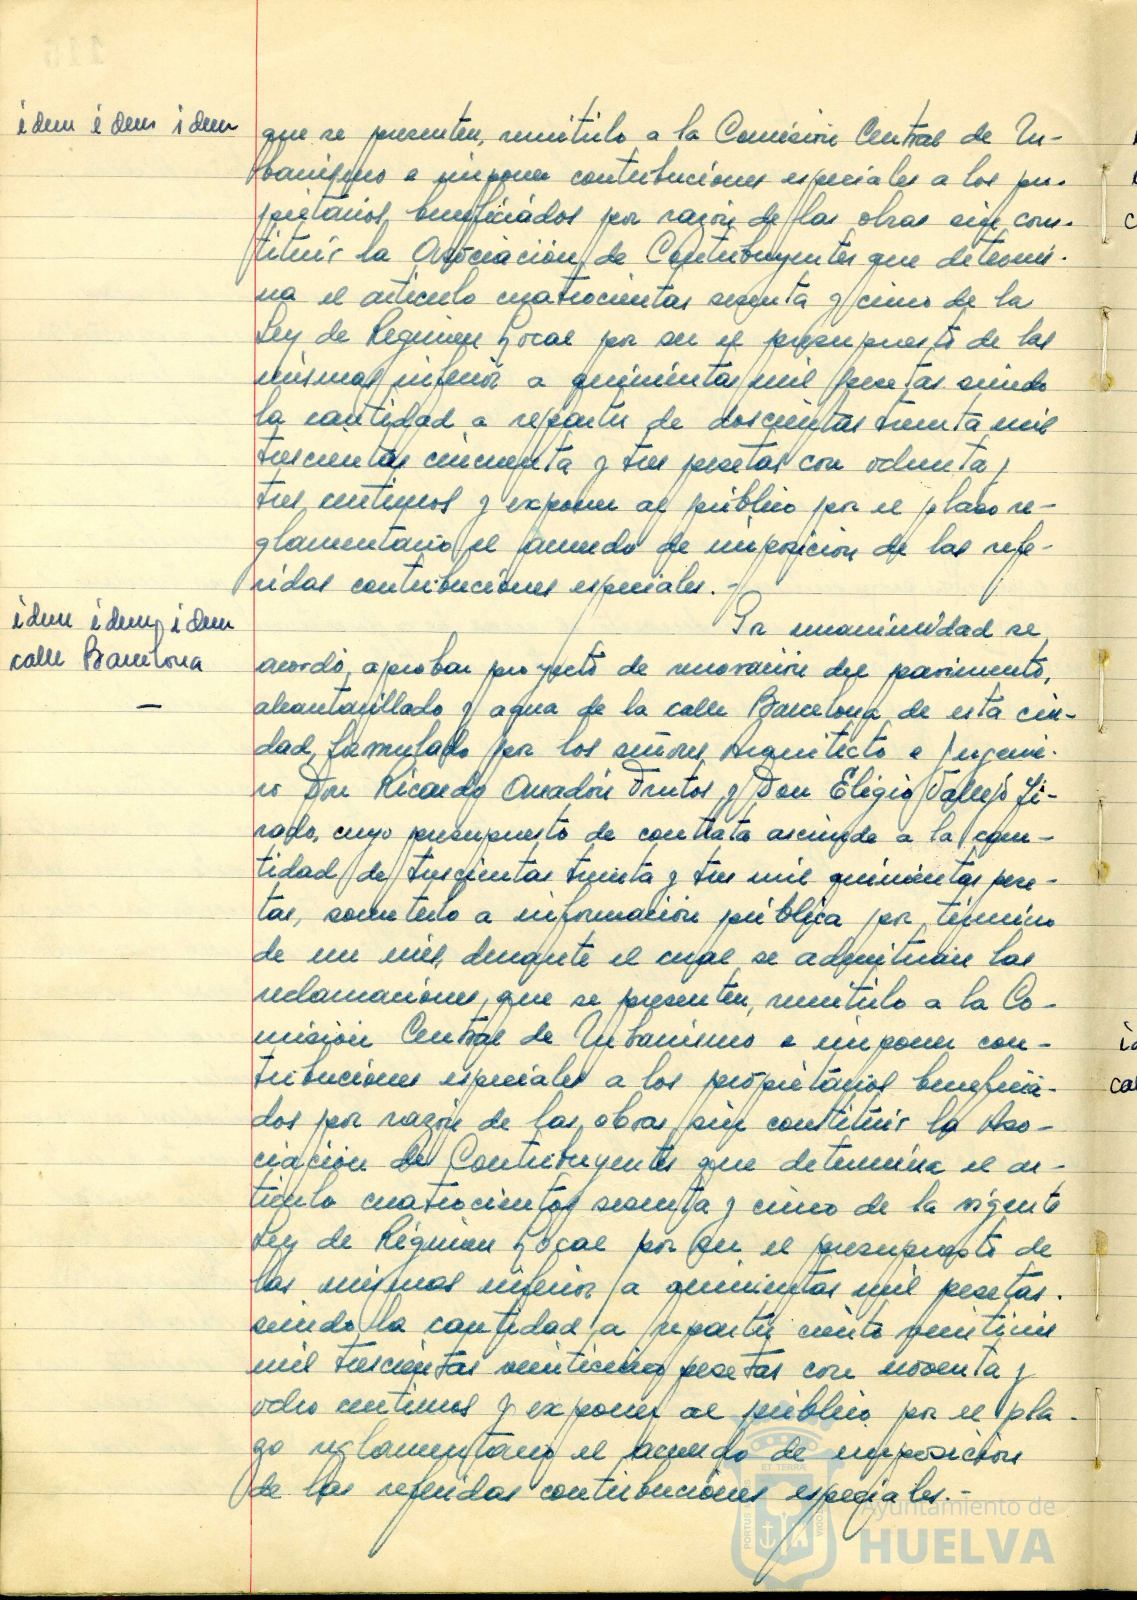 idem idem idem
que se presenten, remitirlo a la Comisión Central de Ur-
banismo e imponer contribuciones especiales a los pro-
pietarios beneficiados por razón de las obras sin cons-
tituir la Asociación de Contribuyentes que determi-
na el artículo cuatrocientos sesenta y cinco de la
Ley de Régimen Local por ser el presupuesto de las
mismas inferior a quinientas mil pesetas siendo
la cantidad a repartir de doscientas treinta mil
trescientas cincuenta y tres pesetas con ochenta y
tres centimos y exponer al público por el plazo re-
glamentario el acuerdo de imposición de las refe-
ridas contribuciones especiales.-
idem idem idem
calle Barcelona
—
Por unanimidad se
acordó, aprobar proyecto de renovación del pavimento,
alcantarillado y agua de la calle Barcelona de esta ciu-
dad, formulado por los señores Arquitecto e Ingenie-
ro Don Ricardo Anadón Frutos y Don Eligio Vallejo Ji-
rado, cuyo presupuesto de contrata asciende a la can-
tidad de trescientas treinta y tres mil quinientas pese-
tas, someterlo a información pública por término
de un mes, durante el cual se admitirán las
reclamaciones, que se presenten, remitirlo a la Co-
misión Central de Urbanismo e imponer con-
tribuciones especiales a los propietarios beneficia-
dos por razón de las obras sin constituir la Aso-
ciación de Contribuyentes que determina el ar-
tículo cuatrocientos sesenta y cinco de la vigente
Ley de Régimen Local por ser el presupuesto de
las mismas inferior a quinientas mil pesetas.
siendo la cantidad a repartir ciento veintiseis
mil trescientas veinticinco pesetas con noventa y
ocho centimos y exponer al público por el pla-
zo reglamentario el acuerdo de imposición
de las referidas contribuciones especiales.-
PORTUS MARIS ET TERRAE CUSTODIA
Ayuntamiento de
HUELVA